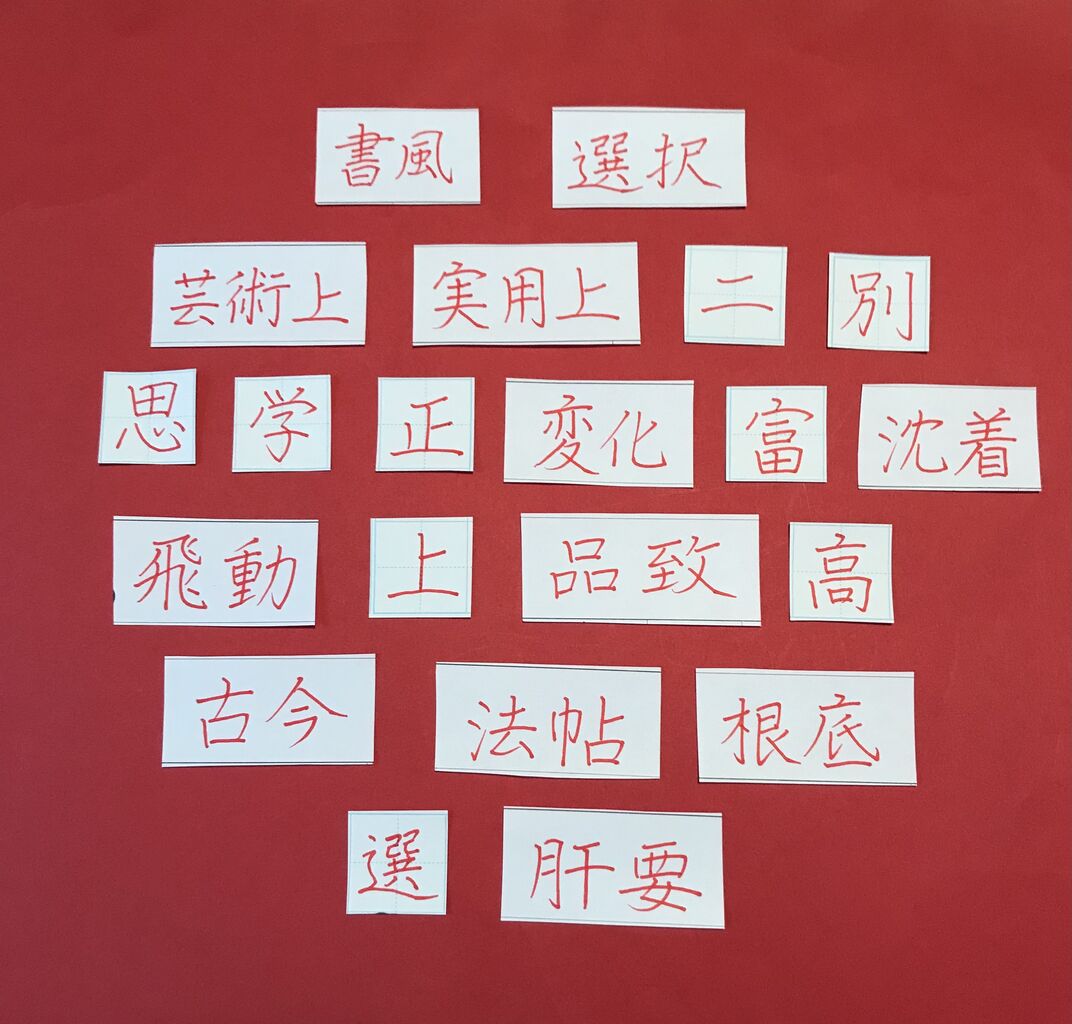 書風 選択
芸術上 実用上 二 別
思 学 正 変化 富 沈着
飛動 上 品致 高
古今 法帖 根底
選 肝要